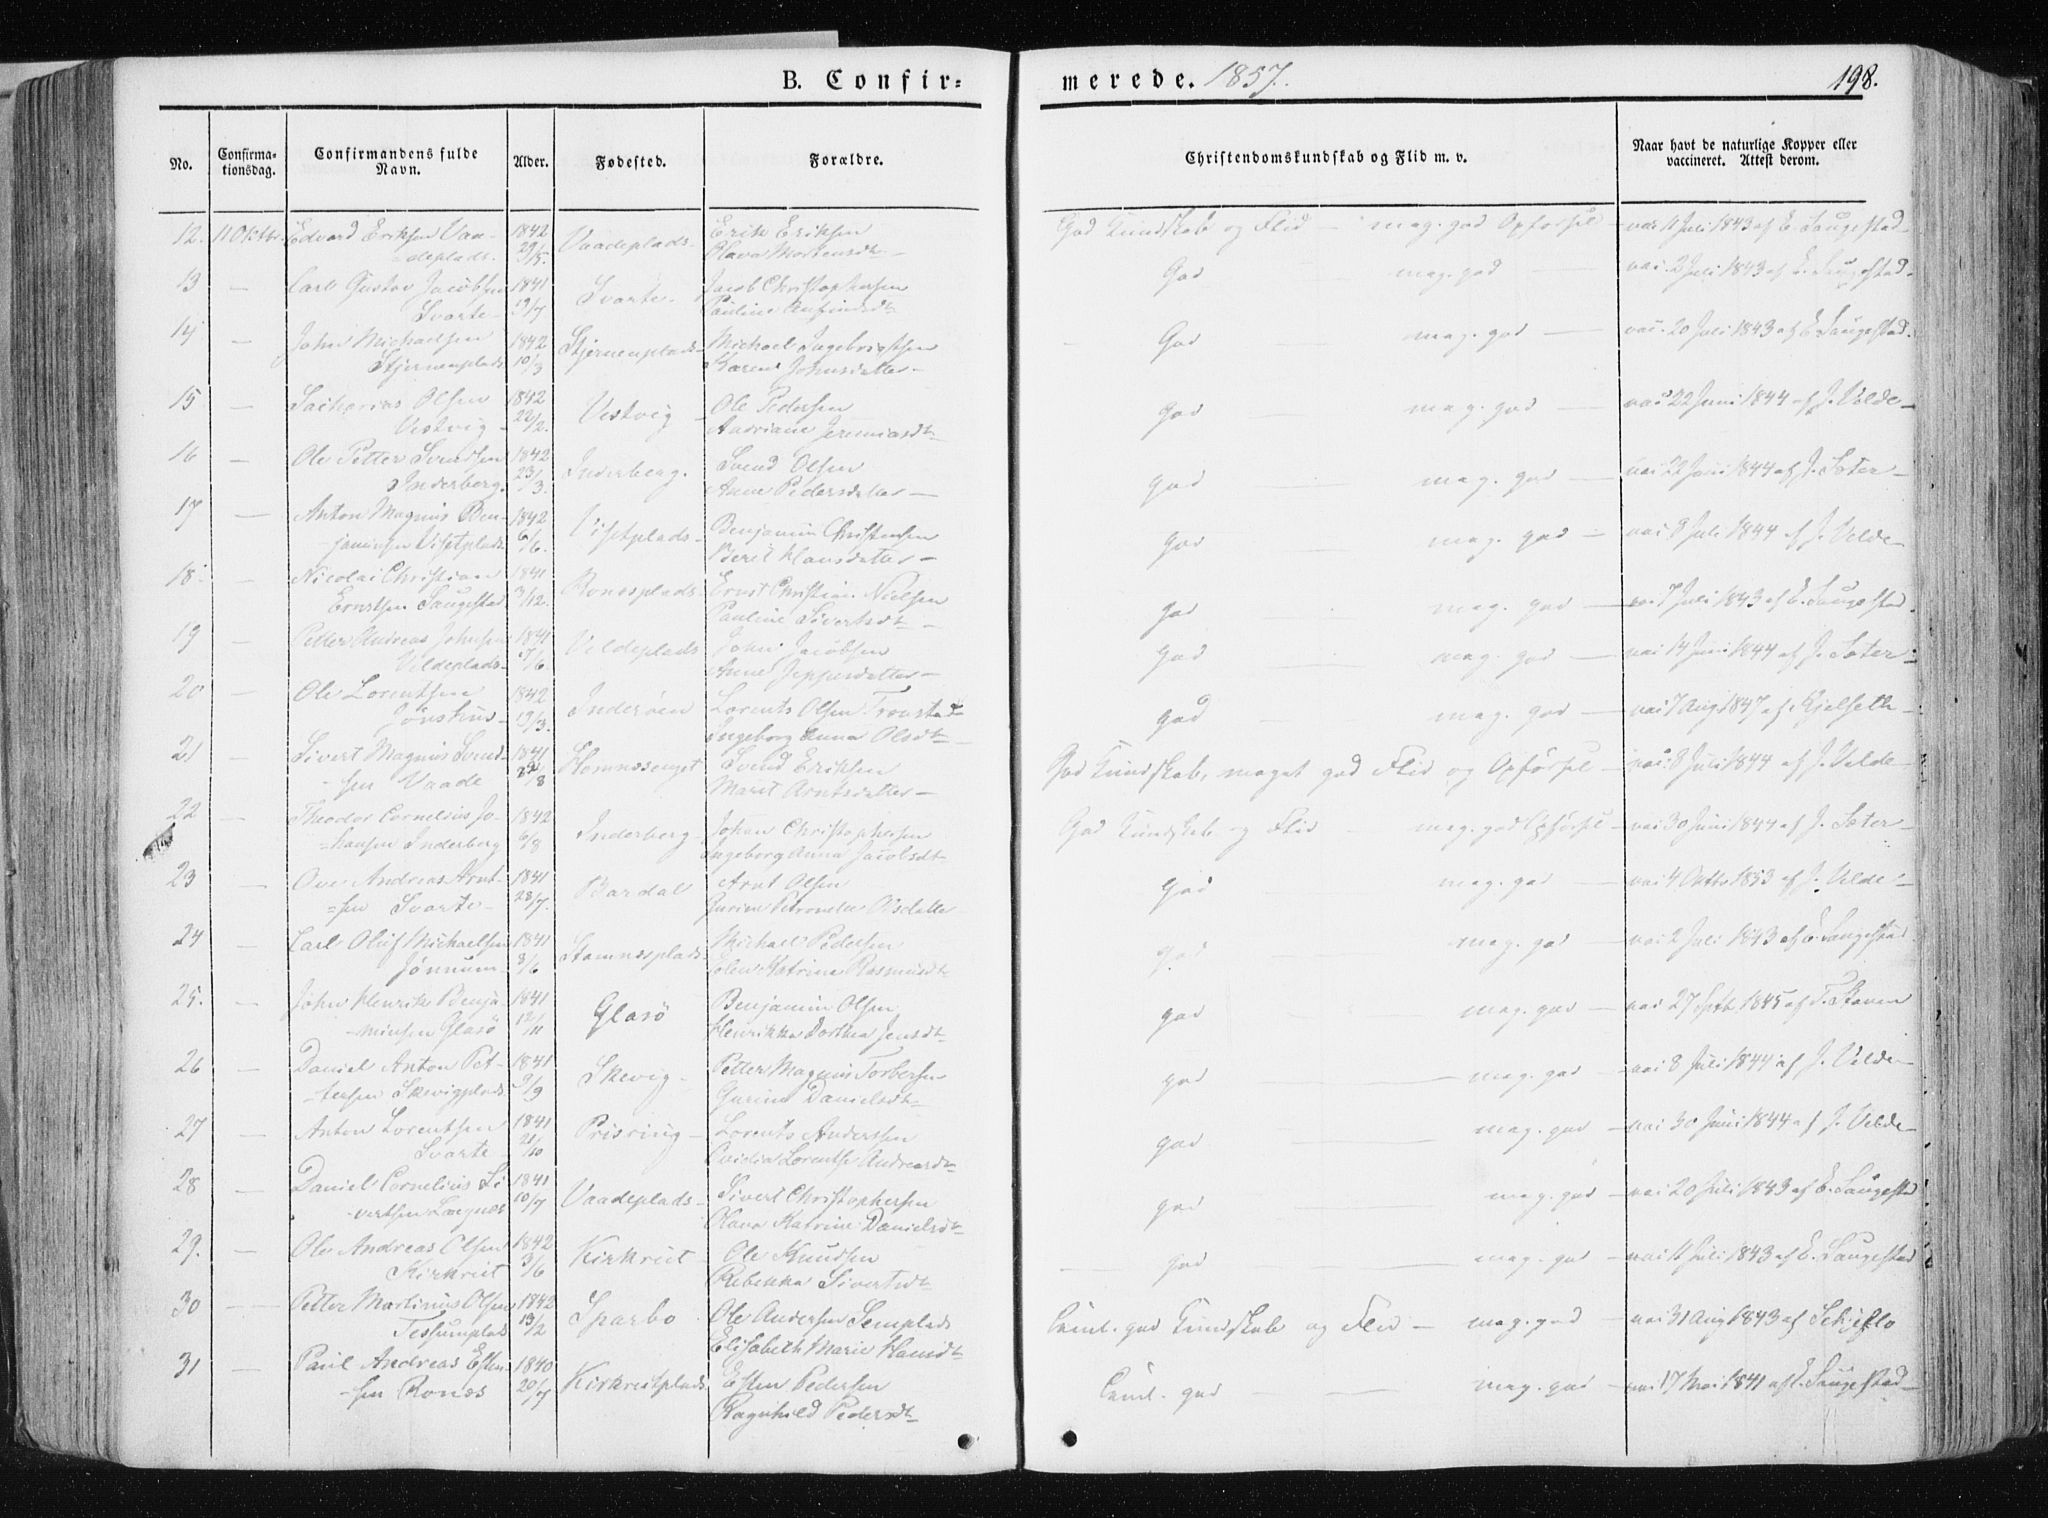 B. Confir= merede. 1857. 198.
No. Confirma-tionsdag. Confirmandens fulde Navn. Alder. Fødested. Forældre. Christendomskundskab og Flid m. v. Naar havt de naturlige Kopper eller vaccineret. Attest derom.
12. 11 Oktbr. Edvard Eriksen Vaa- 1842 Vaadeplads- Erik Eriksen God Kundskab og Flid — meg. god Opførsel — vac. 11 Juli 1843 af E. Saugestad
-deplads. 29/5. Olava Mortensdt —
13 — Carl Gustav Jacobsen 1841 Svarte- Jacob Christophersen God — meg. god — vac. 2 Juli 1843 af E. Saugestad.
Svarte- 19/7 Pauline
14 — John Michaelsen 1842 Stjernenplads- Michael Ingebrigtsen God — meg. god — vac. 20 Juli 1843 af E. Saugestad.
Stjernenplads 10/3 Karen Johnsdatter —
15 — Sacharias Olsen 1842 Vestvig — Ole Pedersen God — meg. god — vac. 22 Juni 1844 af J. Velde —
Vestvig — 22/2. Andriane Jeremiasdt —
16 — Ole Petter Svendsen 1842 Inderberg. Svend Olsen God — meg. god — vac. 22 Juni 1844 af J. Soter —
Inderberg. 23/3. Anne Pedersdatter —
17 — Anton Magnus Ben- 1842 Visetplads- Benjamin Christensen God — meg. god — vac. 8 Juli 1844 af J. Velde —
jaminsen Visetplads. 6/6. Beret Hansdatter —
18. — Nicolai Christian 1841 Ronesplads- Ernst Christian Nielsen God — meg. god — vac. 7 Juli 1843 af E. Saugestad.
Ernstsen Saugestad 3/12. Pauline Sivertsdt —
19 — Petter Andreas Johnsen 1841 Veldeplads John Jacobsen God — meg. god — vac. 14 Juni 1844 af J. Soter —
Veldeplads- 17/6. Anne Jeppesdatter —
20 — Ole Lorentsen 1842 Inderøen Lorents Olsen Tronstad God — meg. god — vac. 7 Aug 1847 af Kjelseth —
- 19/3. Ingeborg Anna Olsdt —
21 — Sivert Magnus Svend- 1841 Hamnesenget Svend Eriksen God Kundskab, meget god Flid og Opførsel — vac. 8 Juli 1844 af J. Velde —
-sen Vaade /8 Marit Arntsdatter —
22 — Theodor Cornelius Jo- 1842 Inderberg- Johan Christophersen God Kundskab og Flid — meg. god Opførsel — vac. 30 Juni 1844 af J. Soter —
=hansen Inderberg 6/8 Ingeborg Anna Jacobsdt —
23 — Ove Andreas Arnt- 1841 Bardal Arnt Olsen God — meg. god — vac. 4 Oktb 1853 af J. Velde —
=sen Svarte- 28/7. Gurine Petronelle Olsdatter
24 — Carl Oluf Michaelsen 1841 Stamnesplads- Michael Pedersen god meg. god — vac. 2 Juli 1843 af E. Saugestad.
Jønnum — 8/6 Olen Katrina Rasmusdt
25. — John Henrik Benja- 1841 Glasø Benjamin Olsen god — meg. god — vac. 27 Septb. 1845 af F. Staven
-minsen Glasø 12/11 Henrikka Dorthea Jensdt
26 — Daniel Anton Pet- 1841 Skevig- Petter Magnus Torbersen god — meg. god — vac. 8 Juli 1844 af J. Velde —
-tersen Skevigplads 9/9 Gurine Danielsdt —
27 — Anton Lorentsen 1841 Prisring — Lorents Andersen god — meg. god — vac. 30 Juni 1844 af J. Velde —
Svarte — 21/10 Lorentse Andreasdt
28 — Daniel Cornelius Si 1841 Vaadeplads- Sivert Christophersen god — meg. god — vac. 20 Juli 1843 af E. Saugestad
-vertsen Langnes 10/7 Olava Katrine Danielsdt
29. — Ole Andreas Olsen 1842 Kirkreit Ole Knudsen god — meg. god — vac. 11 Juli 1843 af E. Saugestad
Kirkreit 3/6 Rebekka Sivertsdt
30 — Petter Martinus Olsen 1842 Sparbo Ole Andersen Semplads Teml. god Kundskab og Flid — meg. god — vac. 31 Aug 1843 af Sekjeflo
Tessumplads 13/2 Elisabeth Marie
31 — Paul Andreas Esten- 1840 Kirkreitplads Esten Pedersen Teml. god — meg. god — vac. 17 Mai 1841 af E. Saugestad —
-sen Rones 20/7 Ragnhild Pedersdt